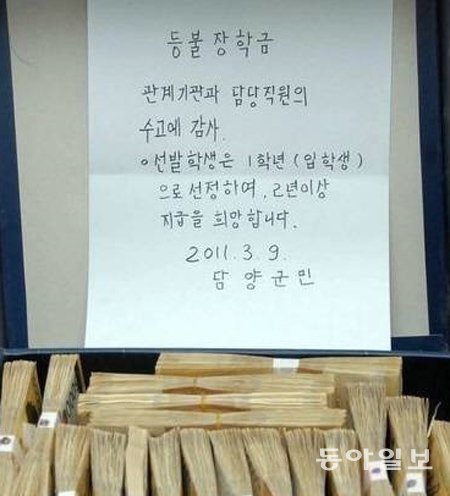 등불장학금
관계기관과 담당직원의
수고에 감사.
○선발학생은 1학년(입학생)
으로선정하여, 2년이상
지급을 희망합니다.
2011. 3. 9.
담양군민
동아일보